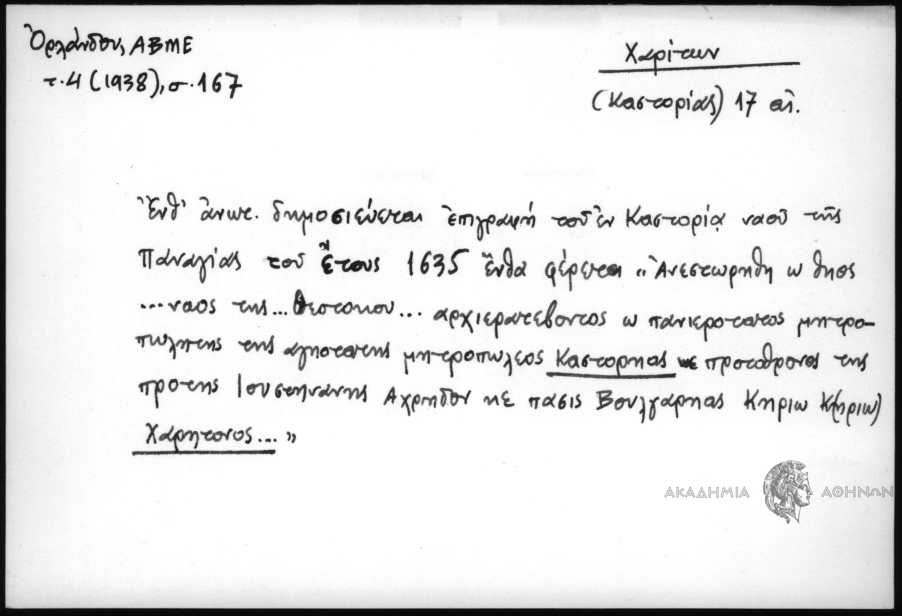 Ὀρλάνδου, ΑΒΜΕ
τ. 4 (1938), σ. 167
Χαρίτων
(Καστορίας) 17 αἰ.
Ἔνθ' ἀνωτ. δημοσιεύεται ἐπιγραφή τοῦ ἐν Καστορίᾳ ναοῦ τῆς
Παναγίας τοῦ ἔτους 1635 ἔνθα φέρεται „Ἀνεστωρηθη ω θηος
...ναος της... Θεοτοκου... αρχιερατεβοντος ω πανιεροτατος μητρο-
πωλητης της αγηοτατης μητροπωλεος Καστορηας κε προτοθρονος της
προτης Ιουστηνανης Αχρηδον κε πασις Βουλγαρηας Κηριω Κ(ηριω)
Χαρητονος... "
ΑΚΑΔΗΜΙΑ ΑΘΗΝΩΝ